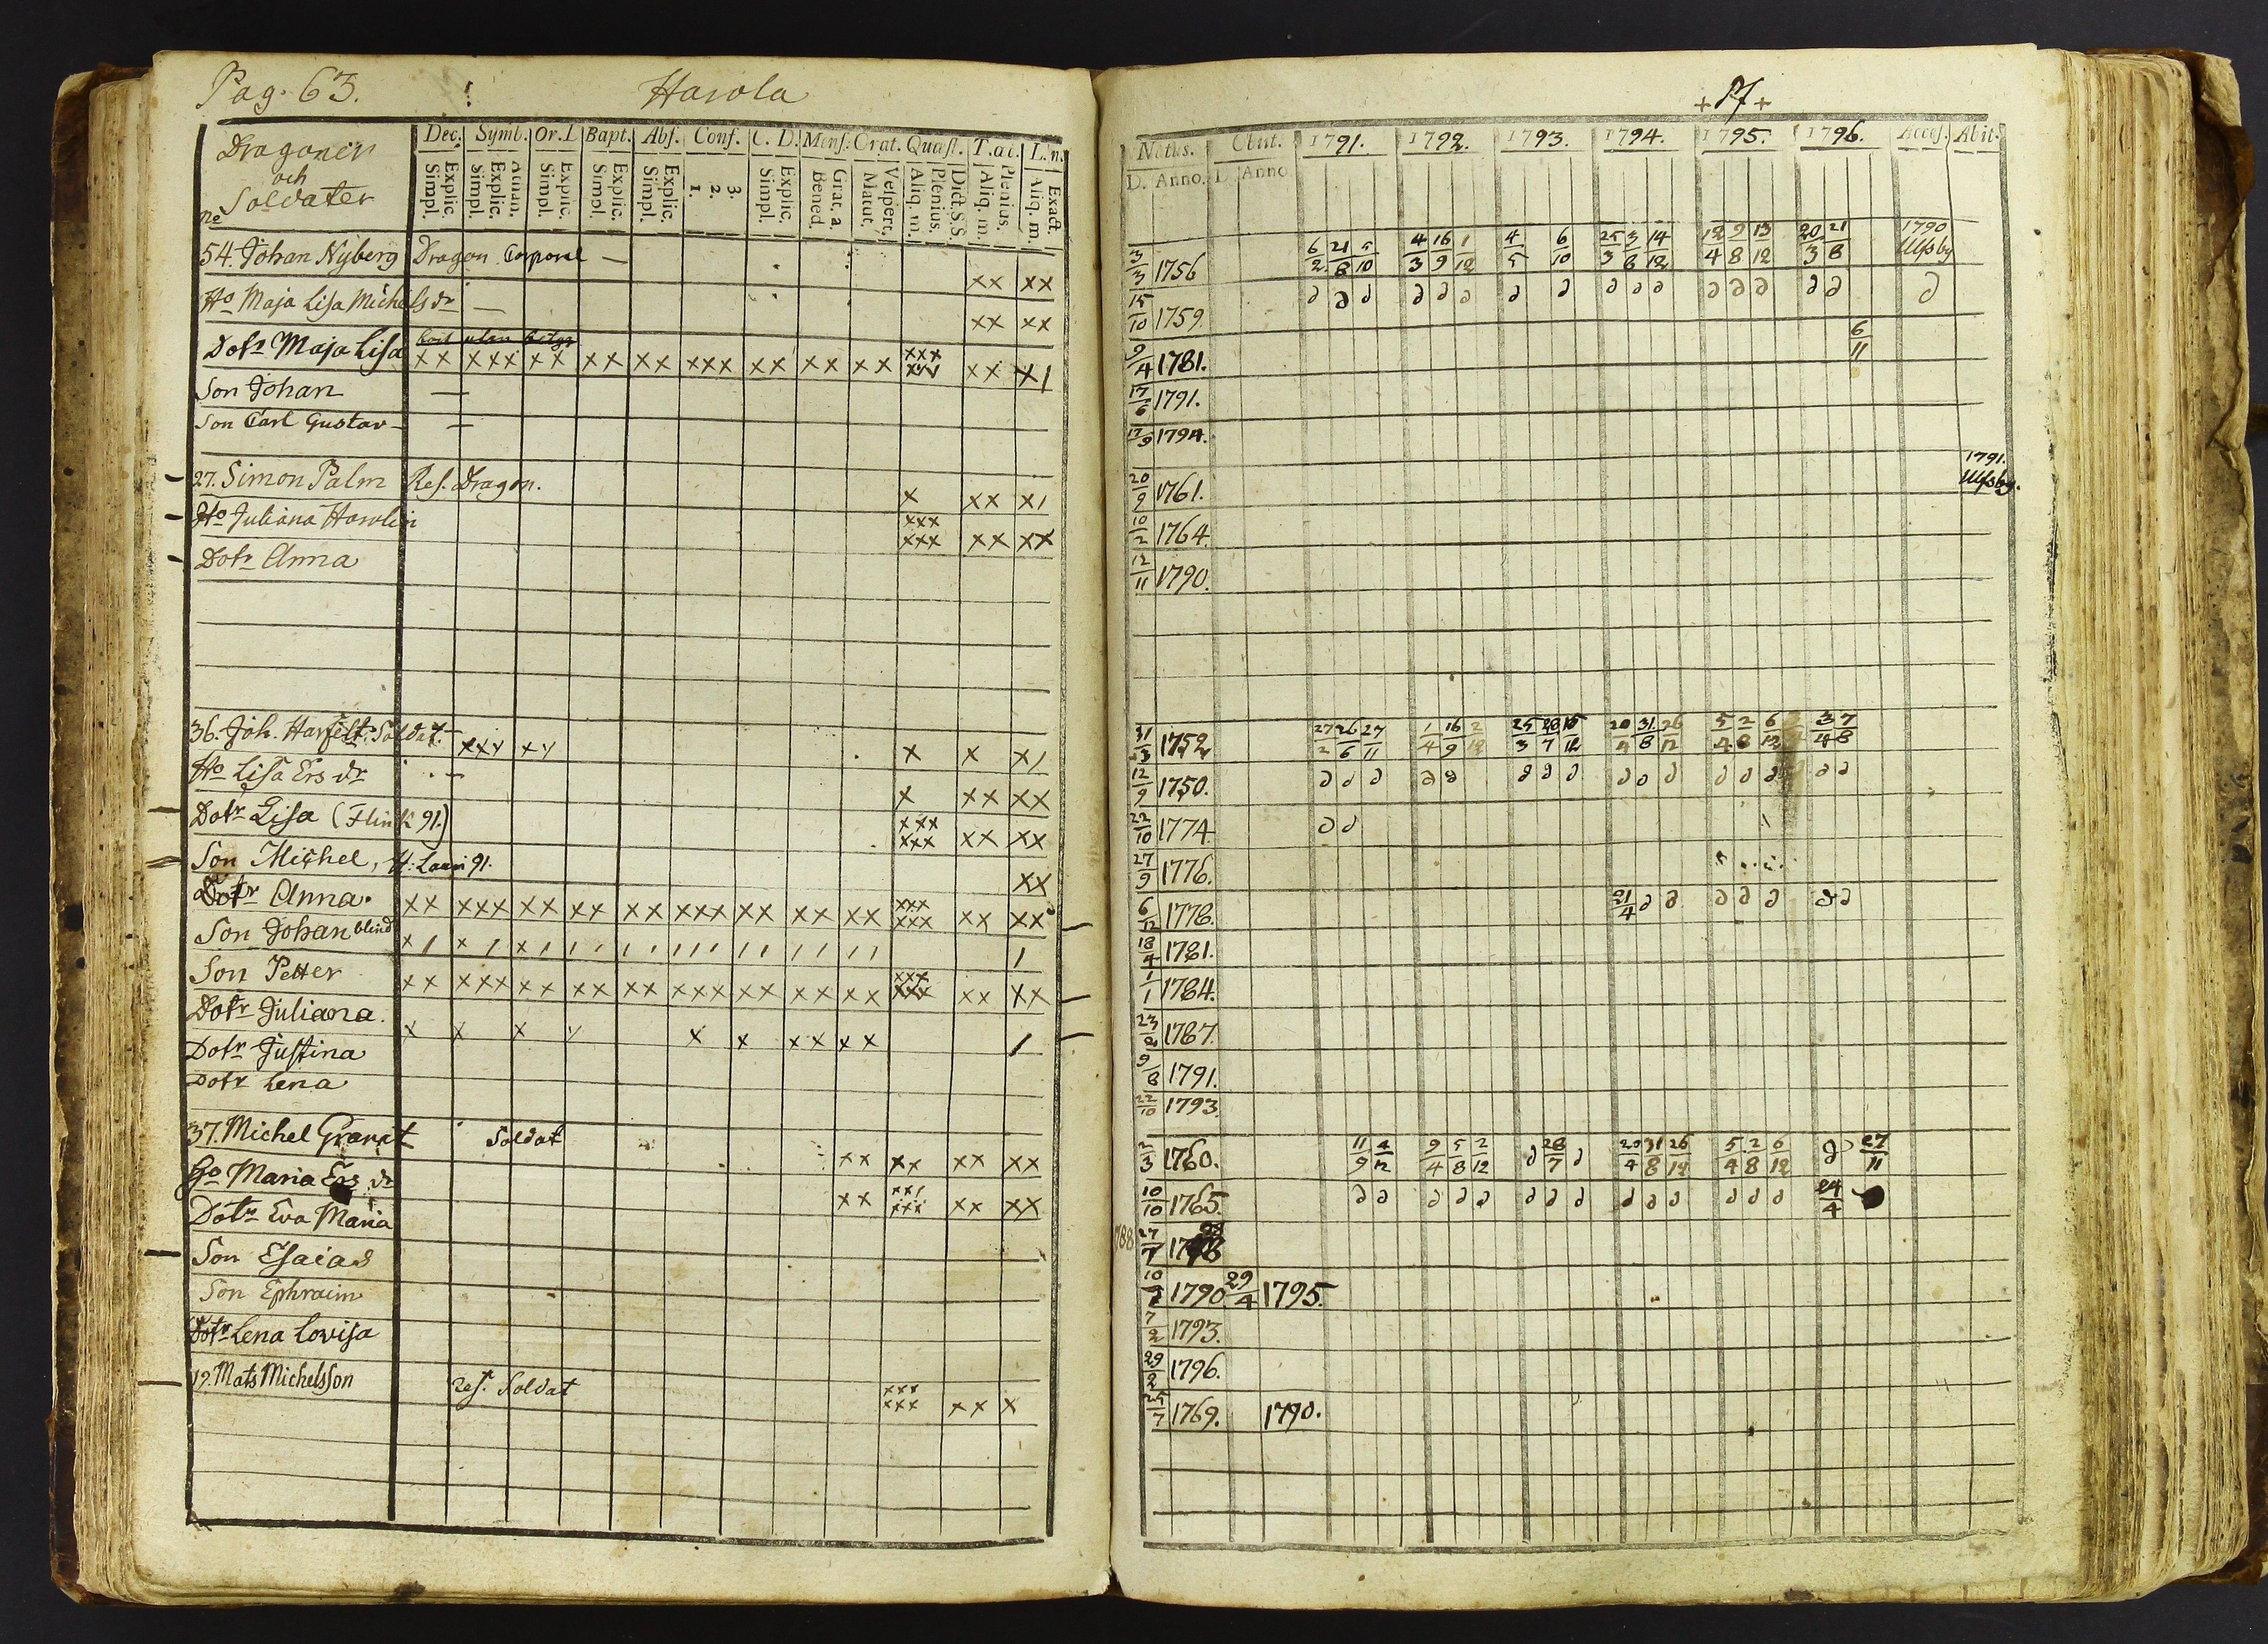 Pag. 63. Harola
Dragoner
och
Soldater
No
Dec. Symb. Or. D. Bapt. Abs. Conf. C. D. Mens. Orat. Quæst. T. œc. L. n.
Explic. Simpl.
Athan. Explic. Simpl.
Explic. Simpl.
Explic. Simpl.
Explic. Simpl.
3. 2. 1.
Explic. Simpl.
Grat. a. Bened.
Vespert. Matut.
Dict. S. S. Plenius. Aliq. m.
Plenius. Aliq. m.
Exact. Aliq. m.
54. Johan Nyberg Dragon Corporal — xx xx
Ho Maja Lisa Michelsdr — xx xx
Dotr Maja Lisa xx xxx xx xx xx xxx xx xx xx xxx xxx xx x/
Son Johan —
Son Carl Gustav —
27. Simon Palm Res. Dragon. x xx x/
Ho Juliana Hawlin xxx xxx xx xx
Dotr Anna
36. Joh. Harfelt Soldat. xxx xx x x x/
Ho Lisa Ersdr — x xx xx
Dotr Lisa (Flink 91.) xxx xxx xx xx
Son Michel, H: Lauri 91. xx
Dotr Anna. xx xxx xx xx xx xxx xx xx xx xxx xxx xx xx
Son Johan blind x/ x/ x/ // // /// // // // /
Son Petter xx xxx xx xx xx xxx xx xx xx xxx xxx xx xx
Dotr Juliana. x x x x x x xx xx /
Dotr Justina
Dotr Lena
37. Michel Granat Soldat xx xx xx xx
Ho Maria Ersdr xx xxx xx xx
Dotr Eva Maria
Son Esaias
Son Ephraim
Dotr Lena Lovisa
19. Mats Michelsson Res. Soldat xxx xxx xx x
+ 57 +
Natus. Obiit. 1791. 1792. 1793. 1794. 1795. 1796. Acces. Abit.
D. Anno. D. Anno
3/3 1756 6/2 21/8 5/10 4/3 16/9 1/12 4/5 6/10 25/3 3/8 14/12 12/4 9/8 13/12 20/3 21/8 1790 Ulfsby
15/10 1759. ∂ ∂ ∂ ∂ ∂ ∂ ∂ ∂ ∂ ∂ ∂ ∂ ∂ ∂ ∂ ∂ ∂
9/4 1781. 6/11
17/6 1791.
17/9 1794.
20/9 1761. 1791. Ulfsby.
10/2 1764.
12/11 1790.
31/3 1752 27/2 26/6 27/11 1/4 16/9 2/12 25/3 28/7 15/12 20/4 31/8 26/12 5/4 2/8 6/12 3/4 7/8
12/9 1750. ∂ ∂ ∂ ∂ ∂ ∂ ∂ ∂ ∂ ∂ ∂ ∂ ∂ ∂ ∂ ∂
22/10 1774. ∂ ∂
27/9 1776.
6/12 1778. 21/4 ∂ ∂ ∂ ∂ ∂ ∂ ∂
18/4 1781.
1/1 1784.
23/2 1787.
9/8 1791.
22/10 1793.
2/3 1760. 11/9 4/12 9/4 5/8 2/12 ∂ 28/7 ∂ 20/4 31/8 26/12 5/4 2/8 6/12 ∂ 27/11
10/10 1765. ∂ ∂ ∂ ∂ ∂ ∂ ∂ ∂ ∂ ∂ ∂ ∂ ∂ ∂ 24/4
788 27/7
10/7 1790. 29/4 1795.
7/2 1793.
29/2 1796.
25/7 1769. 1790.